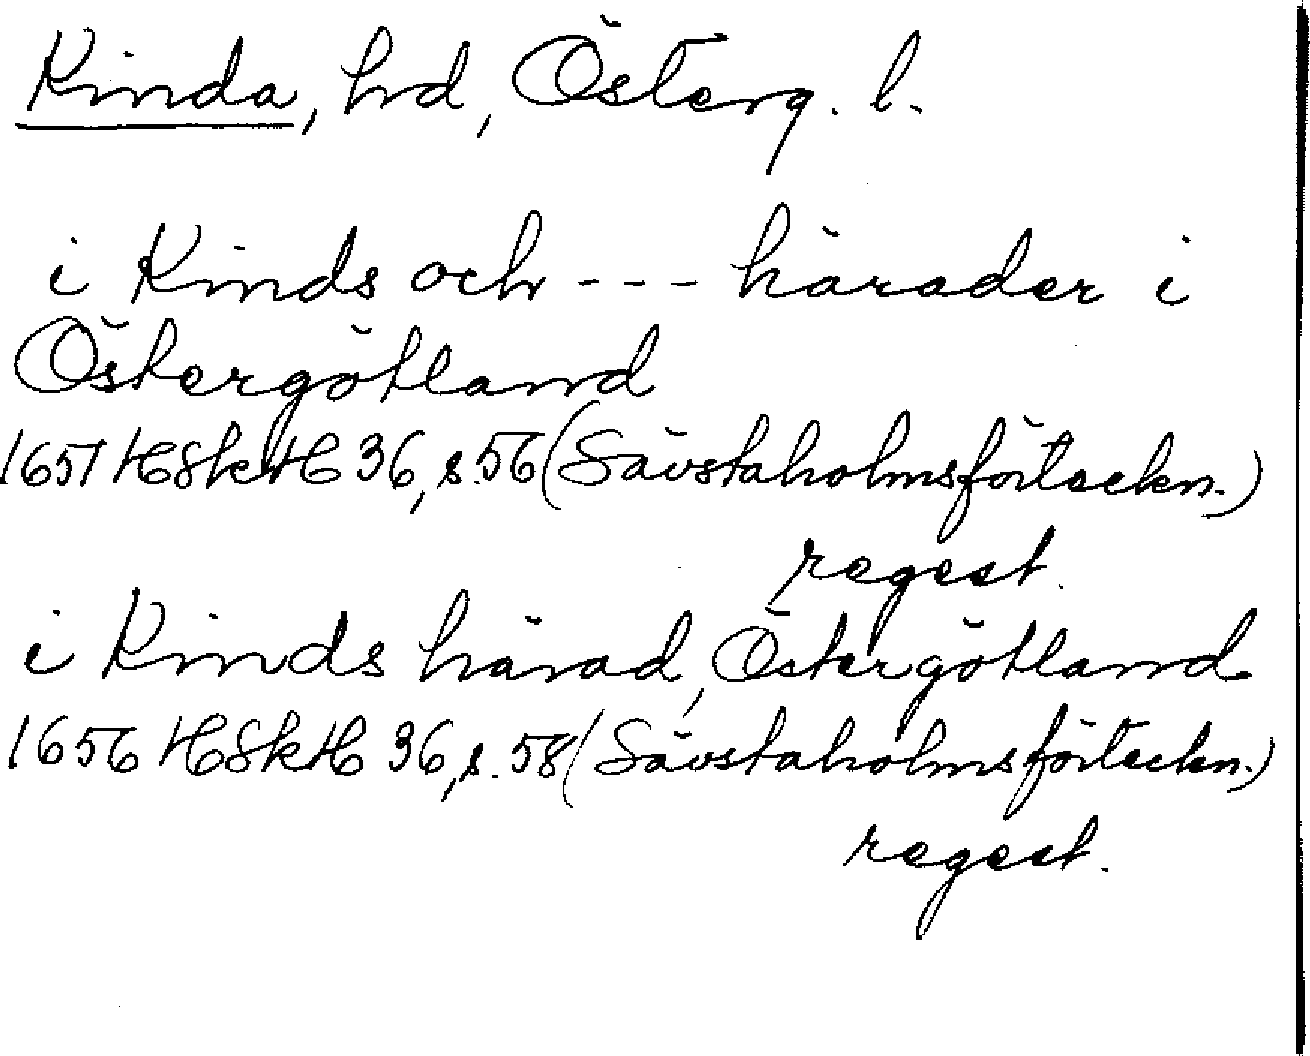 Kinda, hd, Österg. l.
i Kinds och --- härader i
Östergötland
1651 HSkH 36, s. 56 (Sävstaholmsförteckn.)
regest.
i Kinds härad, Östergötland
1656 HSkH 36, s. 58 (Sävstaholmsförteckn.)
regest.